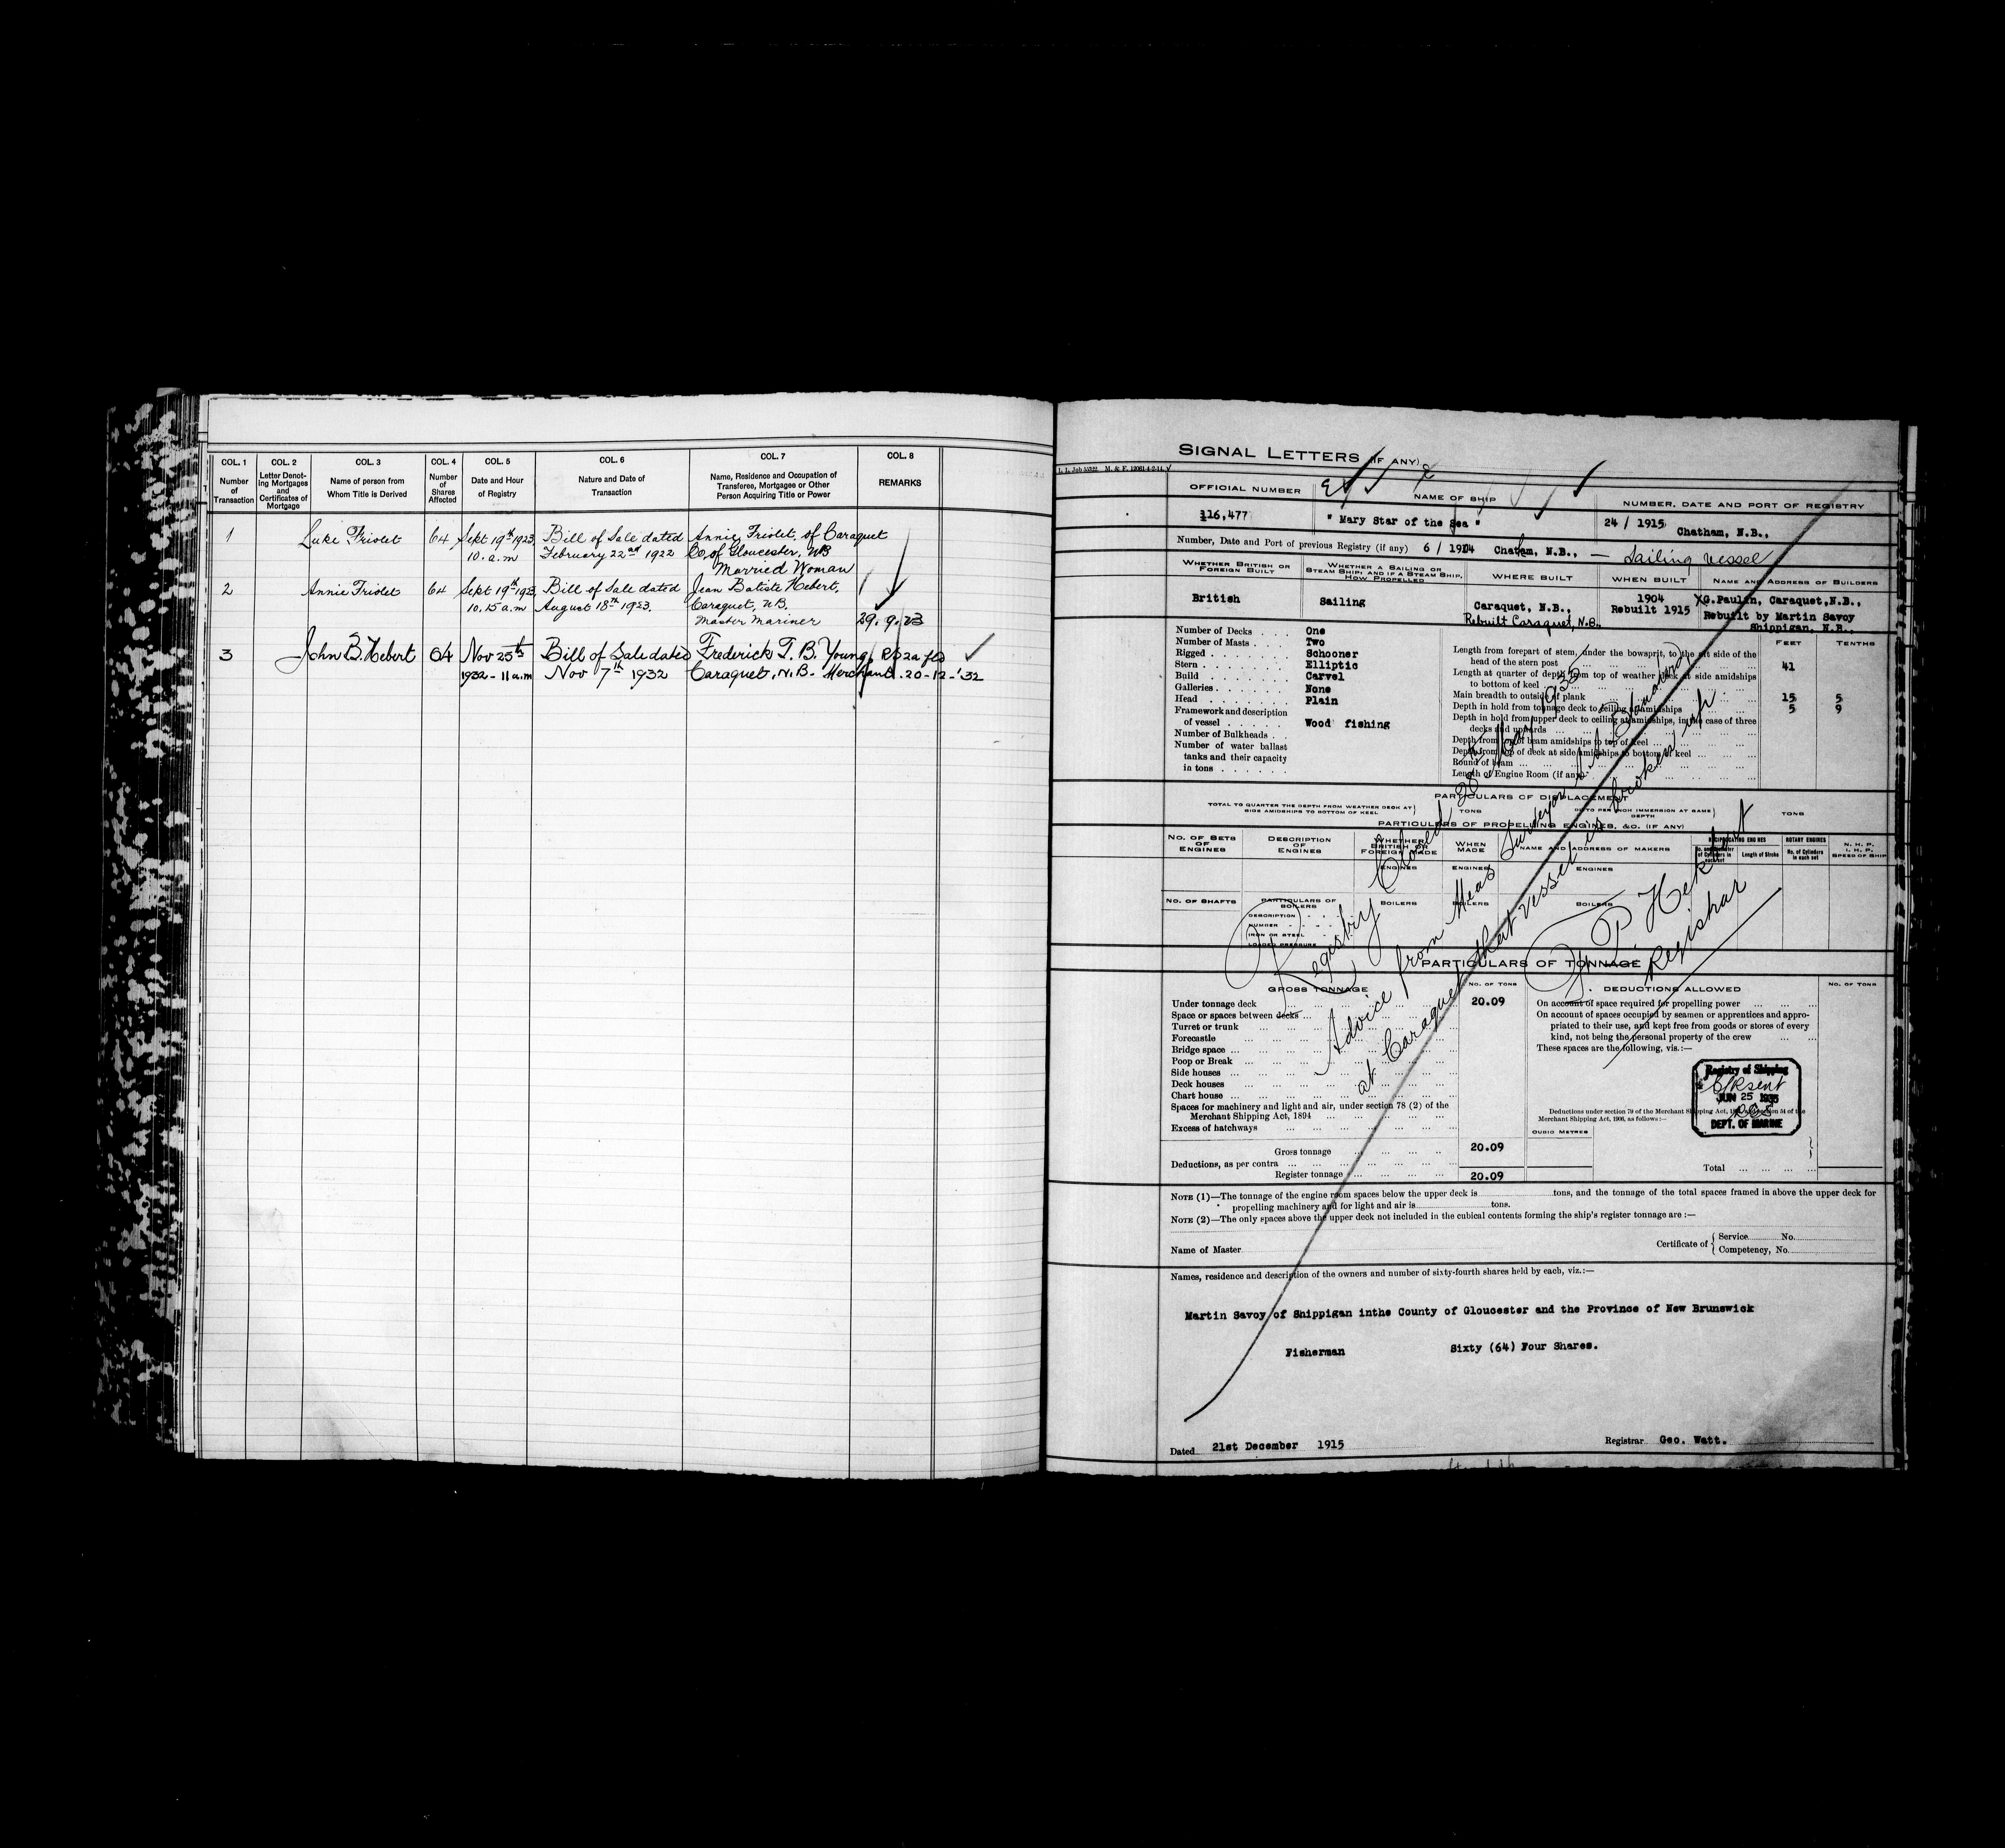 COL. 1 COL. 2 COL. 3 COL. 4 COL. 5 COL. 6 COL. 7 COL. 8
Number of Transaction
Letter Denoting Mortgages and Certificates of Mortgage
Name of person from Whom Title is Derived
Number of Shares Affected
Date and Hour of Registry
Nature and Date of Transaction
Name, Residence and Occupation of Transferee, Mortgagee or Other Person Acquiring Title or Power
REMARKS
1 Luke Friolet 64 Sept 19th 1923 Bill of Sale dated Annie Friolet, of Caraquet
10. a.m February 22nd 1922 Co. of Gloucester, NB
Married Woman
2 Annie Friolet 64 Sept 19th 1923 Bill of Sale dated Jean Batiste Hebert,
10.15 a.m August 18th 1923. Caraquet, NB.
Master Mariner 29.9.23
3 John B. Hebert 64 Nov 25th Bill of Sale dated Frederick T. B. Young,
1932 - 11 a.m Nov 7th 1932 Caraquet, N.B. Merchant. 20-12-'32
SIGNAL LETTERS (IF ANY)
OFFICIAL NUMBER NAME OF SHIP NUMBER, DATE AND PORT OF REGISTRY
116,477 " Mary Star of the Sea " 24 / 1915 Chatham, N.B.,
Number, Date and Port of previous Registry (if any) 6 / 1904 Chatham, N.B., — Sailing Vessel
WHETHER BRITISH OR FOREIGN BUILT
WHETHER A SAILING OR STEAM SHIP; AND IF A STEAM SHIP, HOW PROPELLED
WHERE BUILT WHEN BUILT NAME AND ADDRESS OF BUILDERS
British Sailing Caraquet, N.B., 1904 G.Paulin, Caraquet,N.B.,
Rebuilt Caraquet, N.B., Rebuilt 1915 Rebuilt by Martin Savoy
Shippigan, N.B.,
Number of Decks One
Number of Masts Two
Rigged Schooner
Stern Elliptic
Build Carvel
Galleries None
Head Plain
Framework and description
of vessel Wood fishing
Number of Bulkheads
Number of water ballast
tanks and their capacity
in tons
FEET TENTHS
Length from forepart of stem, under the bowsprit, to the aft side of the
head of the stern post 41
Length at quarter of depth from top of weather deck at side amidships
to bottom of keel
Main breadth to outside of plank 15 5
Depth in hold from tonnage deck to ceiling at amidships 5 9
Depth in hold from upper deck to ceiling at amidships, in the case of three
decks and upwards
Depth from top of beam amidships to top of keel
Depth from top of deck at side amidships to bottom of keel
Round of beam
Length of Engine Room (if any)
PARTICULARS OF DISPLACEMENT
TOTAL TO QUARTER THE DEPTH FROM WEATHER DECK AT
SIDE AMIDSHIPS TO BOTTOM OF KEEL TONS
TONS
PARTICULARS OF PROPELLING ENGINES, &C. (IF ANY)
NO. OF SETS OF ENGINES
DESCRIPTION OF ENGINES
WHETHER BRITISH OR FOREIGN MADE
WHEN MADE
NAME AND ADDRESS OF MAKERS
RECIPROCATING ENGINES
Length of Stroke
ROTARY ENGINES
No. of Cylinders in each set
N. H. P.
I. H. P.
SPEED OF SHIP
ENGINES ENGINES ENGINES
NO. OF SHAFTS PARTICULARS OF BOILERS BOILERS BOILERS BOILERS
DESCRIPTION
NUMBER
IRON OR STEEL
LOADED PRESSURE
Registry Closed 28th May 1935
Advice from Meas Surveyor
at Caraquet that vessel is broken up
Registrar
PARTICULARS OF TONNAGE
GROSS TONNAGE NO. OF TONS DEDUCTIONS ALLOWED NO. OF TONS
Under tonnage deck 20.09
Space or spaces between decks
Turret or trunk
Forecastle
Bridge space
Poop or Break
Side houses
Deck houses
Chart house
Spaces for machinery and light and air, under section 78 (2) of the
Merchant Shipping Act, 1894
Excess of hatchways
Gross tonnage 20.09
Deductions, as per contra
Register tonnage 20.09
On account of space required for propelling power
On account of spaces occupied by seamen or apprentices and appro-
priated to their use, and kept free from goods or stores of every
kind, not being the personal property of the crew
These spaces are the following, vis.:—
Registry of Shipping
JUN 25 1935
DEPT. OF MARINE
Deductions under section 79 of the Merchant Shipping Act, 1894, and section 54 of the
Merchant Shipping Act, 1906, as follows:—
CUBIC METRES
Total
NOTE (1)—The tonnage of the engine room spaces below the upper deck is tons, and the tonnage of the total spaces framed in above the upper deck for
propelling machinery and for light and air is tons.
NOTE (2)—The only spaces above the upper deck not included in the cubical contents forming the ship's register tonnage are :—
Name of Master
Certificate of { Service No.
Competency, No.
Names, residence and description of the owners and number of sixty-fourth shares held by each, viz.:—
Martin Savoy of Shippigan inthe County of Gloucester and the Province of New Brunswick
Fisherman Sixty (64) Four Shares.
Dated 21st December 1915 Registrar Geo. Watt.